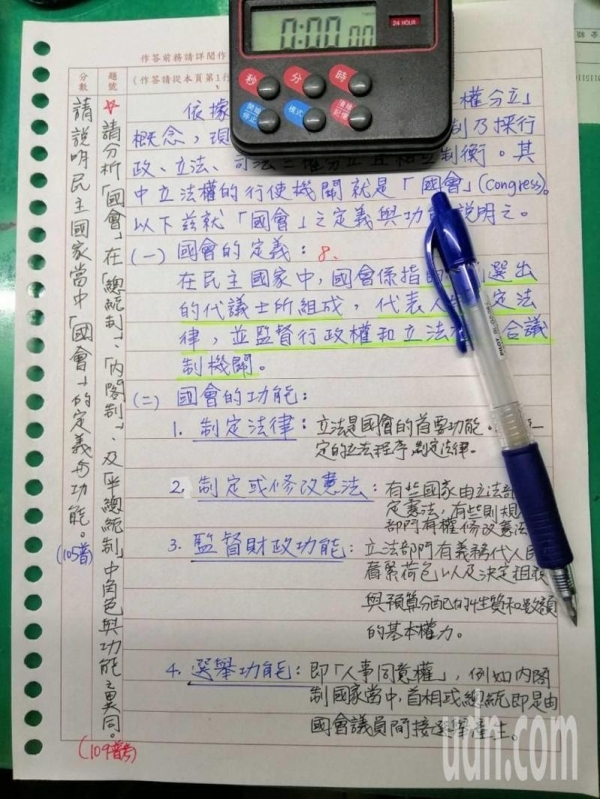 0:00 00
24 HOUR
秒 分 時
開始 停止
模式
作答前務請詳閱作
(作答請從本頁第1行
題號
分數
☆請分析「國會」在「總統制」、「內閣制」、及「半總統制」中角色與功能之異同。
(109普考)
請說明民主國家當中「國會」的定義與功能。
(105普)
依據 權分立」
概念，現 制乃採行
政、立法、司法三權分立且相互制衡。其
中立法權的行使機關就是「國會」(Congress)。
以下茲就「國會」之定義與功能說明之。
(一) 國會的定義：8.
在民主國家中，國會係指 選出
的代議士所組成，代表人 定法
律，並監督行政權和立法 合議
制機關。
(二) 國會的功能：
1. 制定法律：立法是國會的首要功能。 一
定的立法程序，制定法律。
2. 制定或修改憲法：有些國家由立法部
定憲法，有些則規
部門有權修改憲法
3. 監督財政功能：立法部門有義務代人民
看緊荷包以及決定租稅
與預算分配的性質和數額
的基本權力。
4. 選舉功能：即「人事同意權」，例如內閣
制國家當中，首相或總統即是由
國會議員間接選舉產生。
udn.com